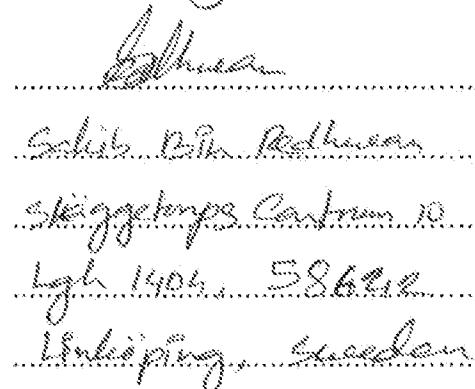 Sakib Bin Redhwan
Skäggetorps Centrum 10
Lgh 1404, 58642
Linköping, Sweden